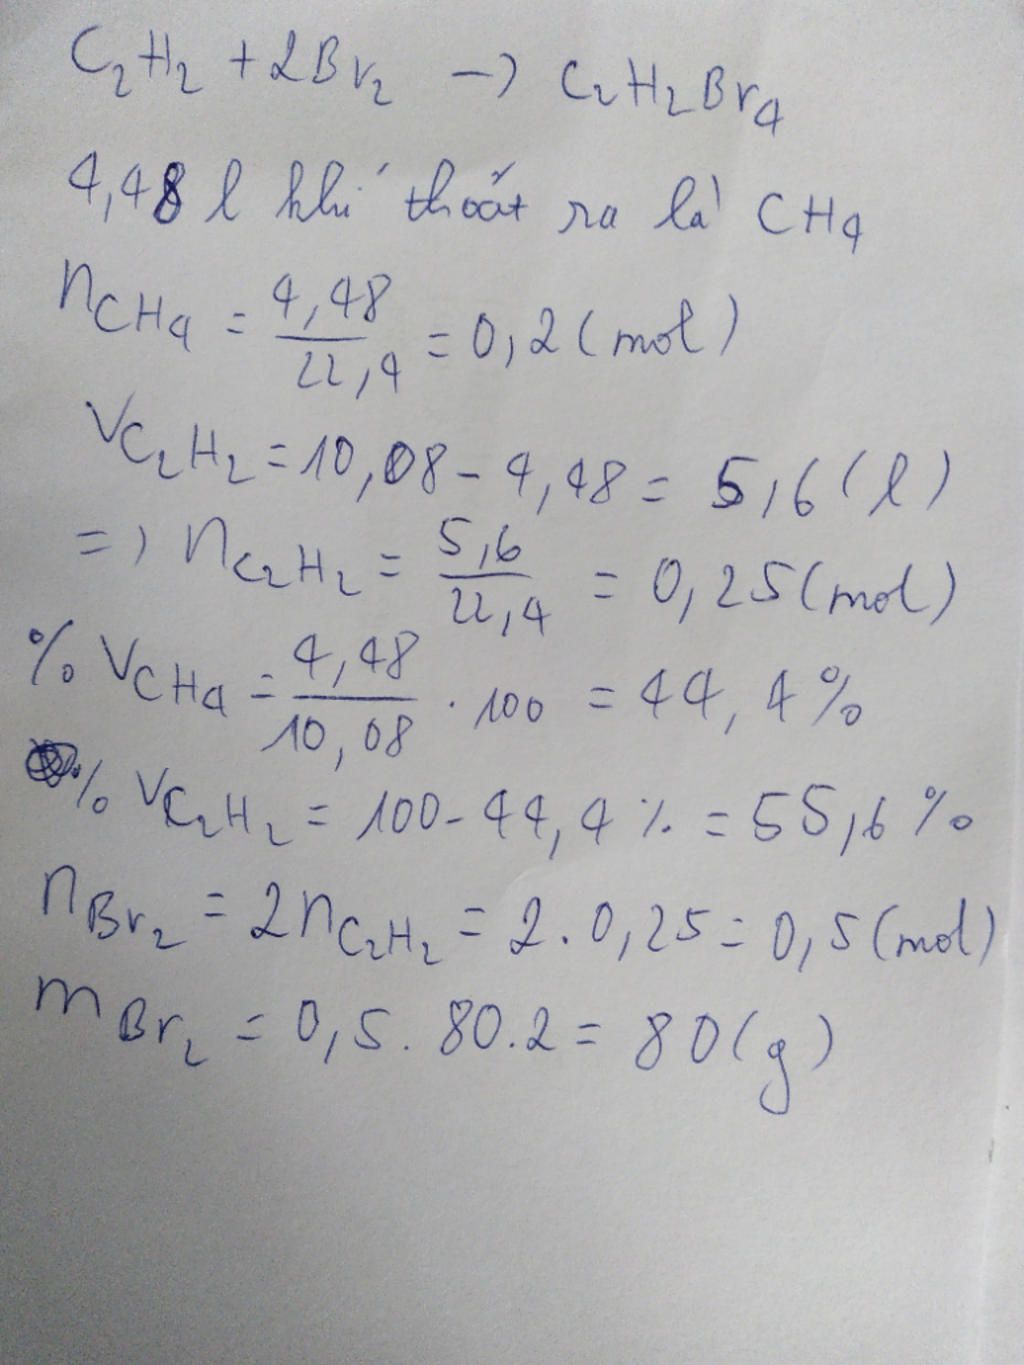 C₂H₂ + 2Br₂ → C₂H₂Br₄
4,48 l khí thoát ra là CH₄
nCH₄ = 4,48/22,4 = 0,2 (mol)
VC₂H₂ = 10,08 - 4,48 = 5,6 (l)
=> nC₂H₂ = 5,6/22,4 = 0,25 (mol)
% VCH₄ = 4,48/10,08 . 100 = 44,4 %
% VC₂H₂ = 100 - 44,4 % = 55,6 %
nBr₂ = 2nC₂H₂ = 2 . 0,25 = 0,5 (mol)
mBr₂ = 0,5 . 80.2 = 80 (g)